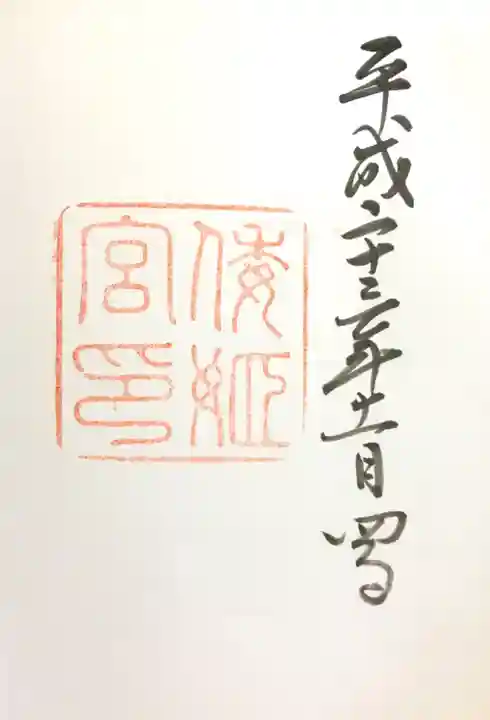 平成二十三年十一月四日
倭姫
宮印